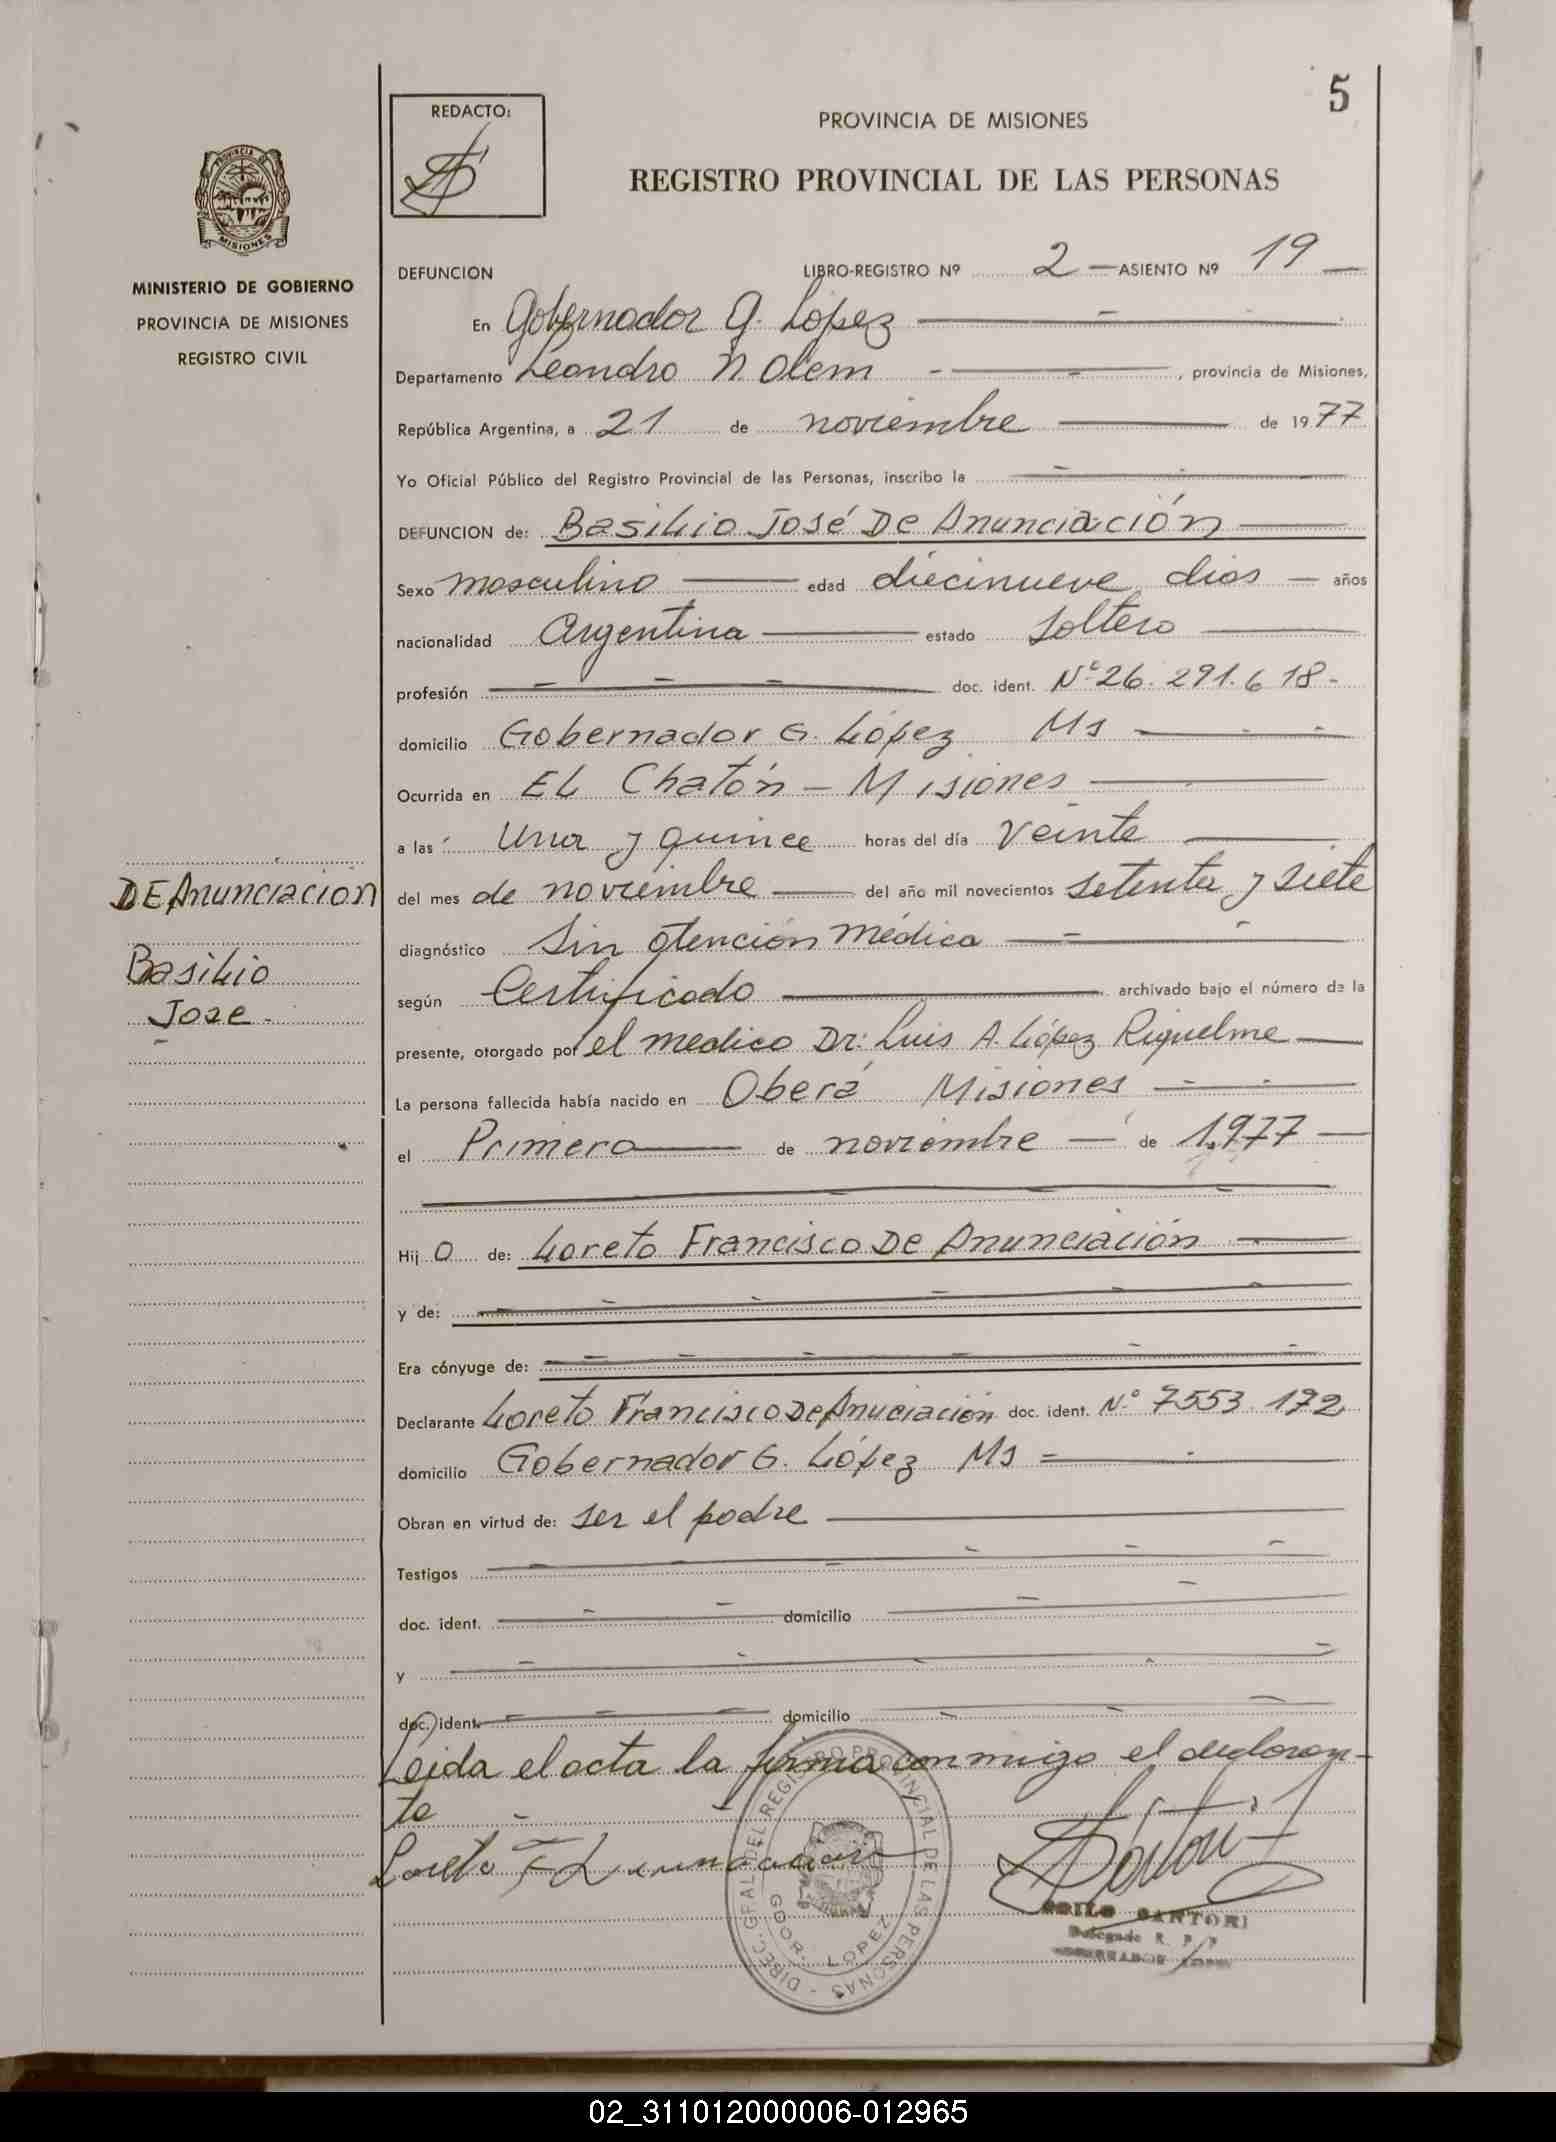 5
REDACTO:
PROVINCIA DE MISIONES
REGISTRO PROVINCIAL DE LAS PERSONAS
PROVINCIA DE
MISIONES
MINISTERIO DE GOBIERNO
PROVINCIA DE MISIONES
REGISTRO CIVIL
DEFUNCION LIBRO-REGISTRO Nº 2 — ASIENTO Nº 19 —
En Gobernador G. López
Departamento Leandro N. Alem, provincia de Misiones,
República Argentina, a 21 de noviembre de 1977
Yo Oficial Público del Registro Provincial de las Personas, inscribo la
DEFUNCION de: Basilio José De Anunciación
Sexo masculino edad diecinueve dias — años
nacionalidad Argentina estado soltero
profesión doc. ident. Nº 26.291.618-
domicilio Gobernador G. López Ms
Ocurrida en EL Chatón - Misiones
a las Una y quince horas del día Veinte
del mes de noviembre del año mil novecientos setenta y siete
DE Anunciación
diagnóstico Sin atención médica
Basilio
según Certificado archivado bajo el número de la
Jose -
presente, otorgado por el medico Dr: Luis A. López Riquelme
La persona fallecida había nacido en Oberá Misiones
el Primero de noviembre de 1,977
Hij o de: Loreto Francisco De Anunciación
y de:
Era cónyuge de:
Declarante Loreto Francisco De Anuciación doc. ident. Nº 7553.172
domicilio Gobernador G. López Ms
Obran en virtud de: ser el padre
Testigos
doc. ident. domicilio
y
doc. ident. domicilio
Leida el acta la firma conmigo el declaran-
te
Loreto F
DIREC. GRAL DEL REGISTRO PROVINCIAL DE LAS PERSONAS
GDOR. LOPEZ
SANTORI
Delegado R. P. P
02_311012000006-012965